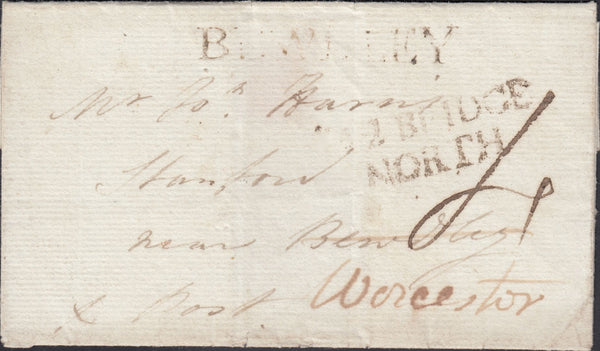 BEWDLEY
Mr Jon Harris
BRIDGE
NORTH
Stanford
near Bewdley
& Post Worcester